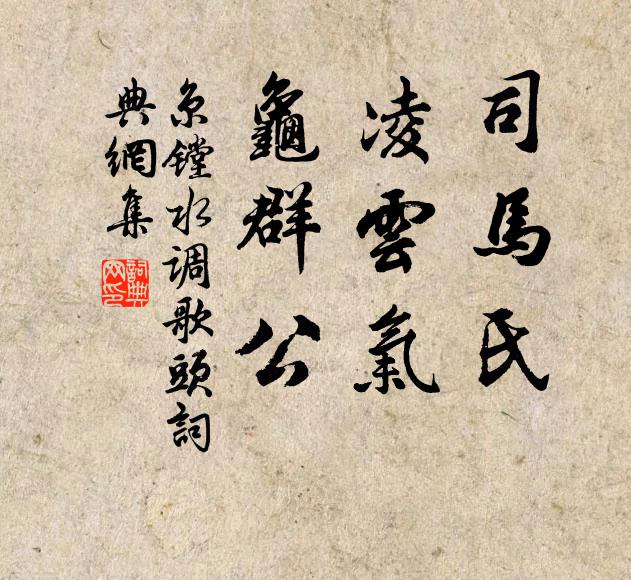 司馬氏
凌雲氣
龜群公
京镗水调歌頭詞
典網集
詞典
网印